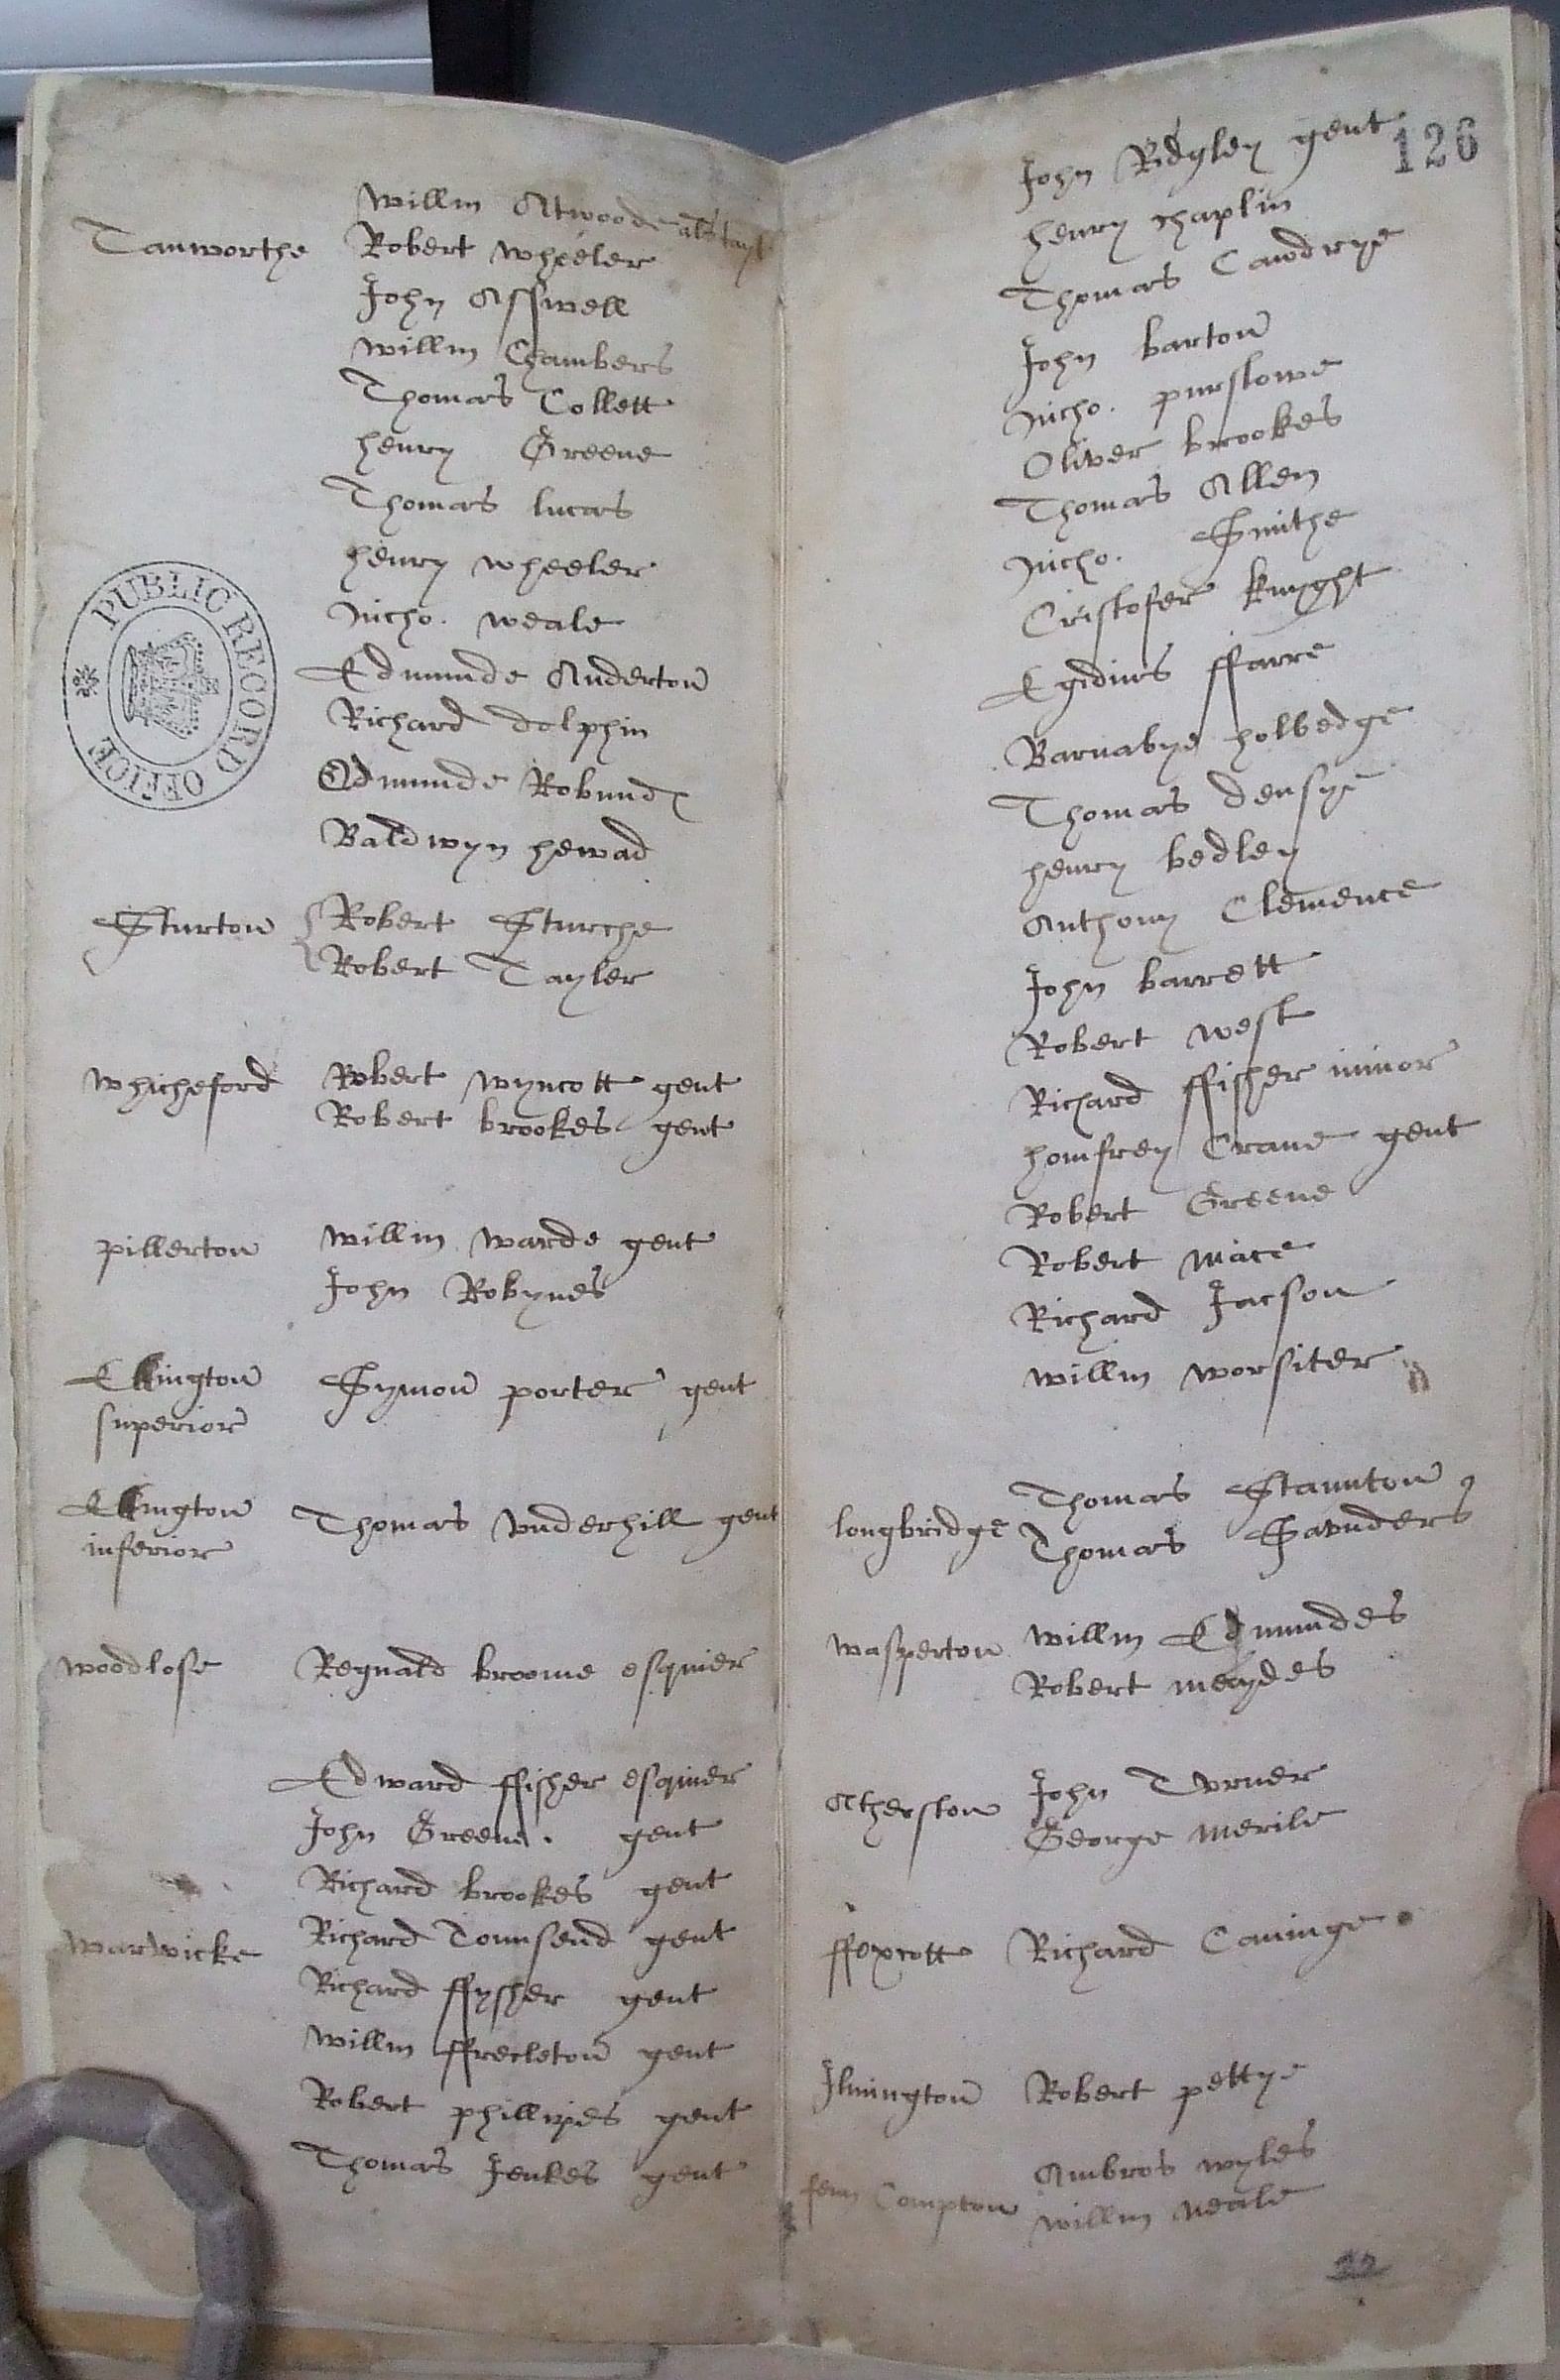 Willm Atwoode als tayl
Tanworthe Robert Wheeler
John Asswell
Willm Chambers
Thomas Collett
henry Greene
Thomas lucas
henry Wheeler
Nicho. Weale
Edmunde Anderton
Richard dolphin
Edmunde Robund
Baldwyn hewad
PUBLIC RECORD OFFICE
Sturton Robert Sturche
Robert Tayler
Whicheford Robert Wyncott gent
Robert brookes gent
pillerton Willm Warde gent
John Robynes
Ekington Symon porter gent
superior
Ekington Thomas Vnderhill gent
inferior
Woodlose Regnald broome esquier
Edward ffisher esquier
John Greene. gent
Richard brookes gent
Warwicke Richard Tounsend gent
Richard ffysher gent
Willm ffrecleton gent
Robert phillipes gent
Thomas Jenkes gent
126
John Rigley gent
henry Chaplin
Thomas Cawdrye
John barton
Nicho. purslowe
Oliver brookes
Thomas Allen
Nicho. Smithe
Cristofer knyght
Egidius ffarre
Barnabye holbedge
Thomas densye
henry bedley
Anthony Clemence
John barrett
Robert West
Richard ffisher iunior
homfrey Crane gent
Robert Greene
Robert Mace
Richard Jacson
Willm Worsiter
longbridge Thomas Staunton
Thomas Saunders
Wasperton Willm Edmundes
Robert meaydes
Atherston John Turner
George Merile
ffoxcott Richard Caninge
Ilmington Robert pettye
fenn Compton Ambros Wyles
Willm Neale
22